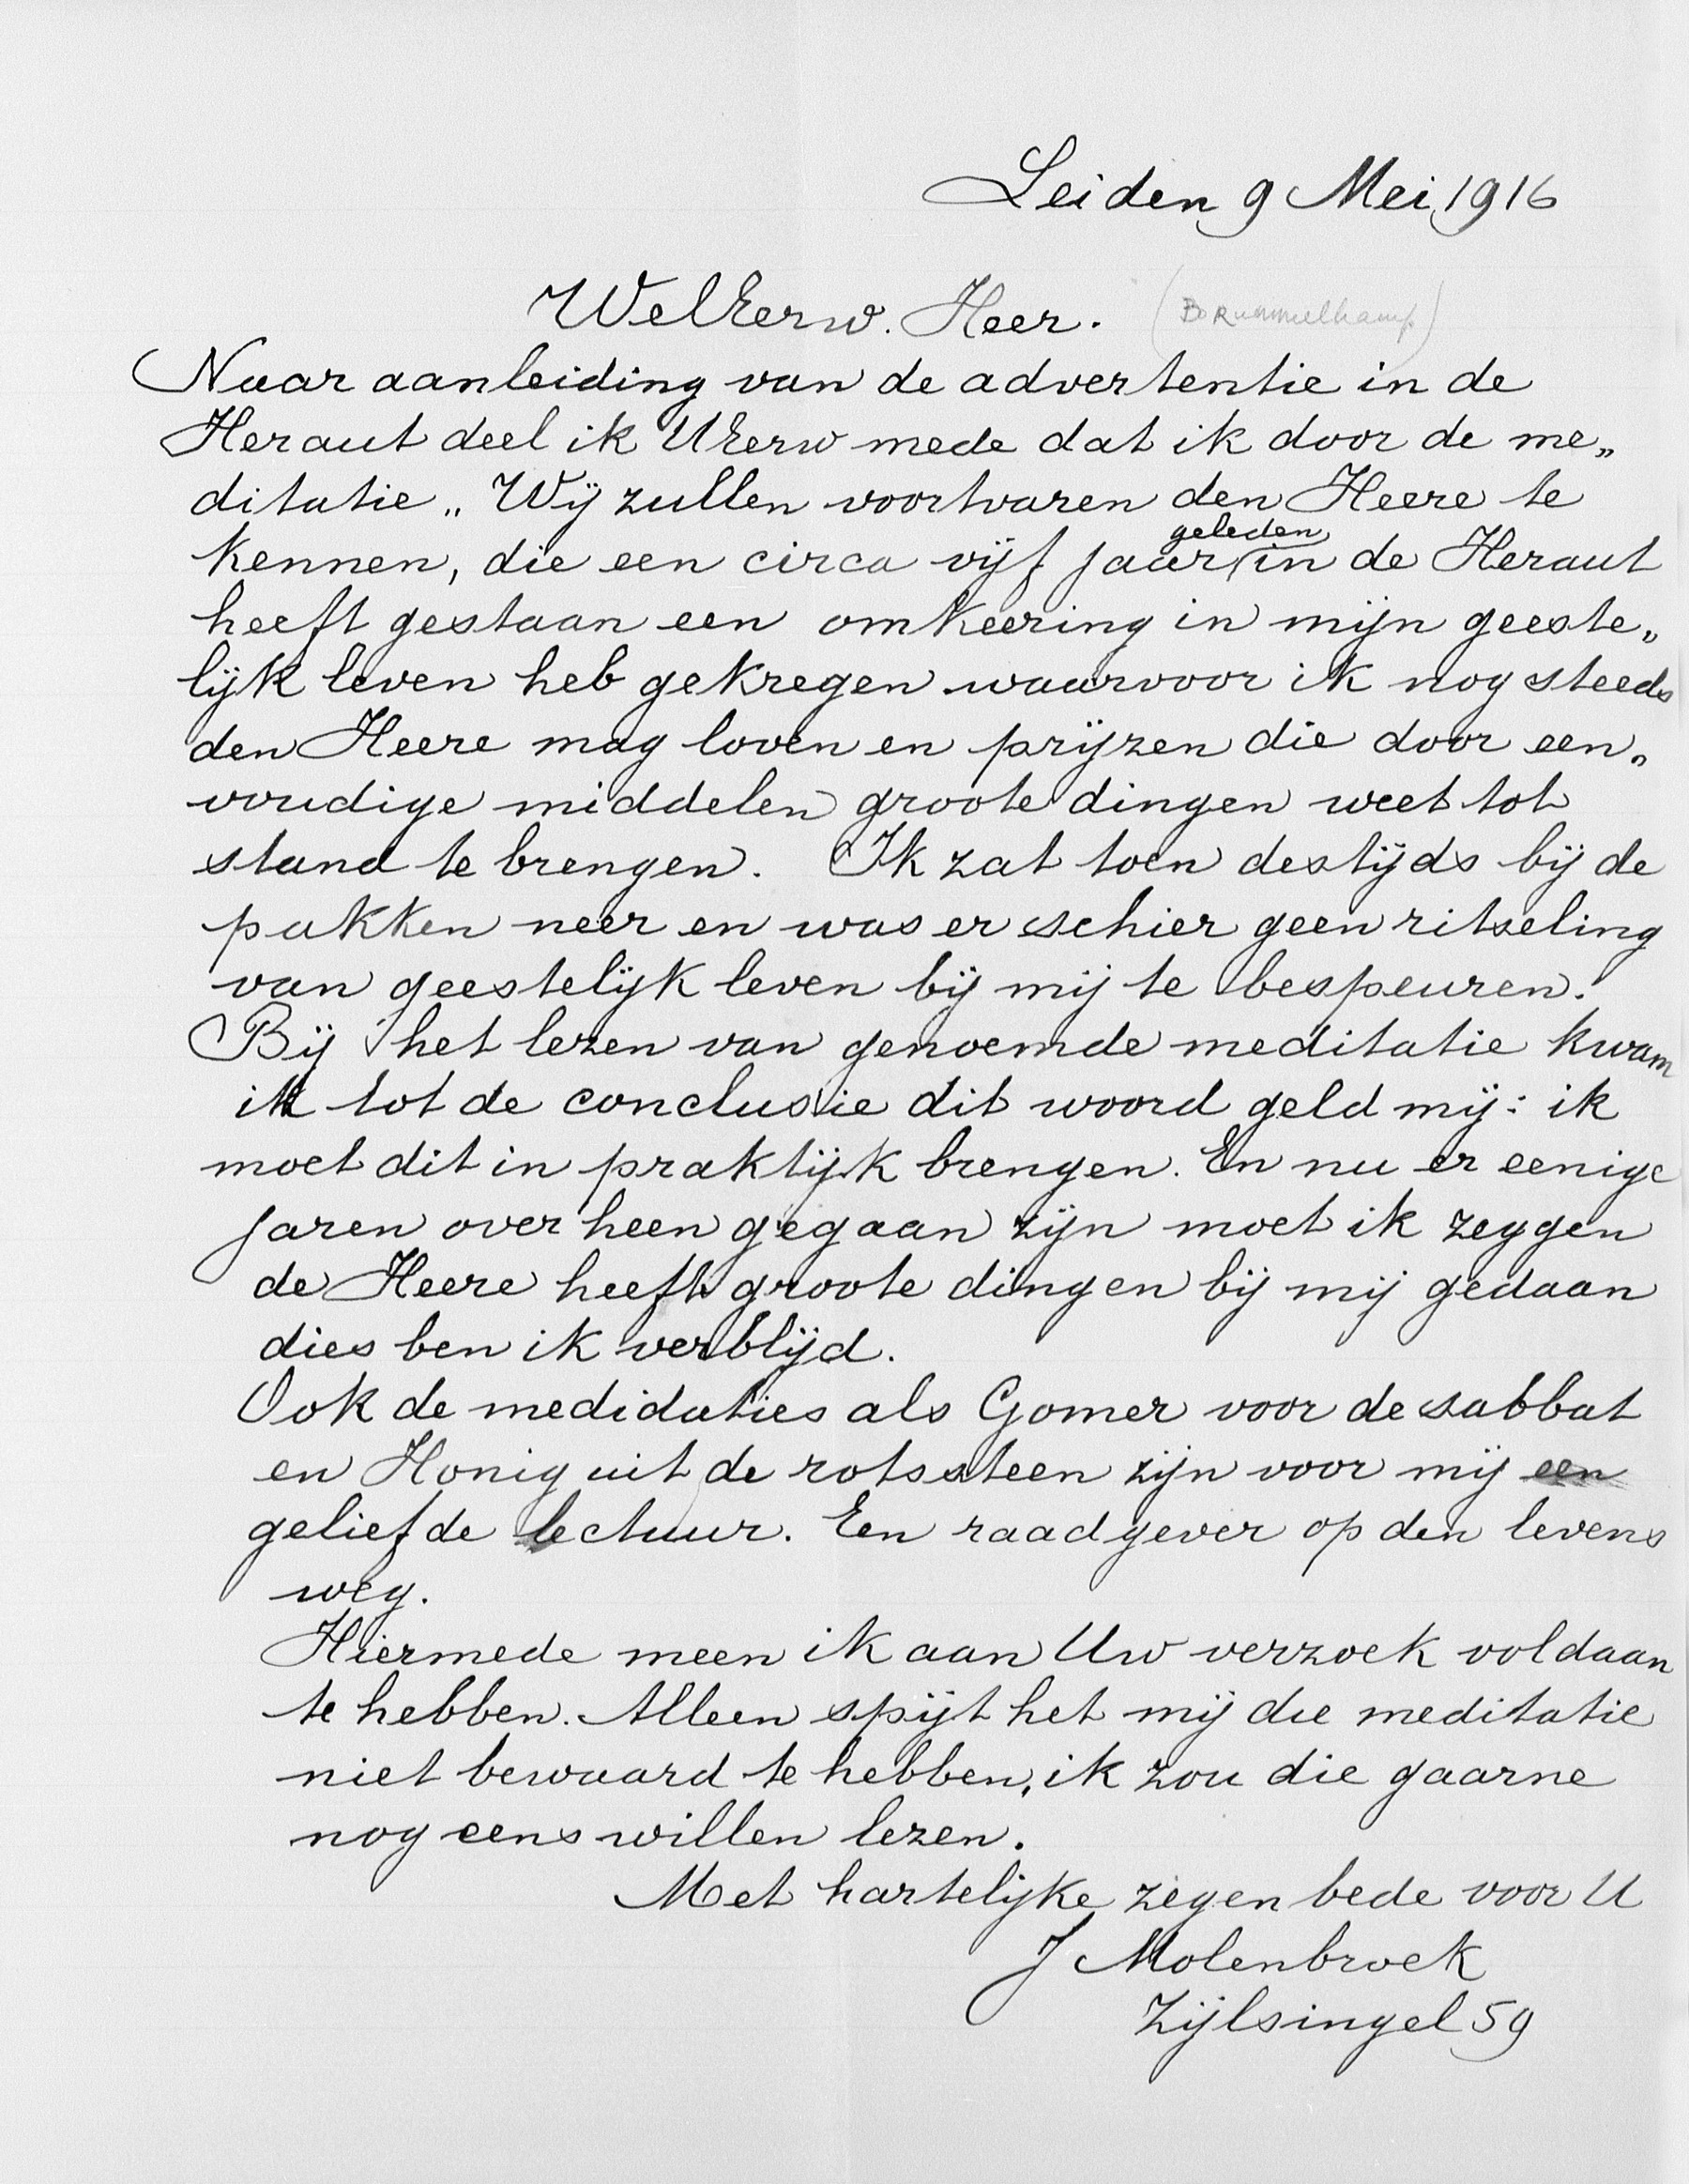 Leiden 9 Mei 1916
WelEerw. Heer. (Brummelkamp)
Naar aanleiding van de advertentie in de
Heraut deel ik UEerw mede dat ik door de me„
ditatie „Wij zullen voortvaren den Heere te
geleden
kennen, die een circa vijf jaar in de Heraut
heeft gestaan een omkeering in mijn geeste„
lijk leven heb gekregen waarvoor ik nog steeds
den Heere mag loven en prijzen die door een„
voudige middelen groote dingen weet tot
stand te brengen. Ik zat toen destijds bij de
pakken neer en was er schier geen ritseling
van geestelijk leven bij mij te bespeuren.
Bij het lezen van genoemde meditatie kwam
ik tot de conclusie dit woord geld mij: ik
moet dit in praktijk brengen. En nu er eenige
jaren over heen gegaan zijn moet ik zeggen
de Heere heeft groote dingen bij mij gedaan
dies ben ik verblijd.
Ook de medidaties als Gomer voor de sabbat
en Honig uit de rotssteen zijn voor mij een
geliefde lectuur. Een raadgever op den levens
weg.
Hiermede meen ik aan Uw verzoek voldaan
te hebben. Alleen spijt het mij die meditatie
niet bewaard te hebben, ik zou die gaarne
nog eens willen lezen.
Met hartelijke zegen bede voor U
J Molenbroek
Zijlsingel 59